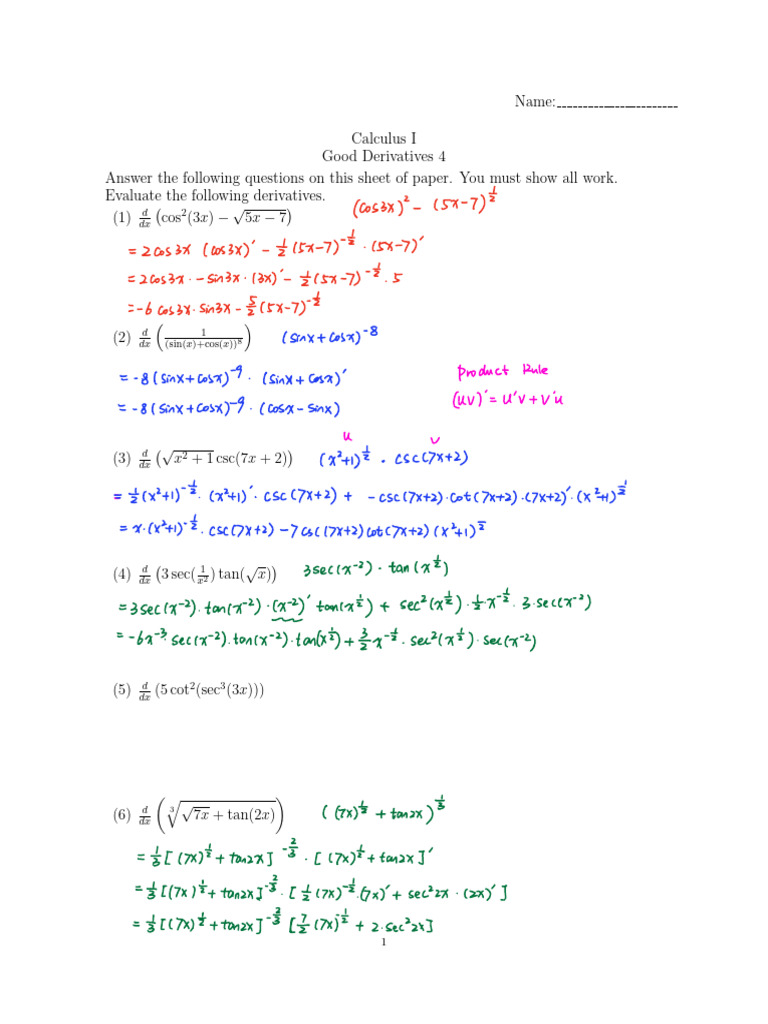 Name:
Calculus I
Good Derivatives 4
Answer the following questions on this sheet of paper. You must show all work.
Evaluate the following derivatives.
(1) d/dx (cos²(3x) − √(5x − 7)) (cos3x)² − (5x−7)^(1/2)
= 2 cos3x (cos3x)′ − 1/2 (5x−7)^(−1/2) · (5x−7)′
= 2cos3x · −sin3x · (3x)′ − 1/2 (5x−7)^(−1/2) · 5
= −6 cos3x · sin3x − 5/2 (5x−7)^(−1/2)
(2) d/dx (1/(sin(x)+cos(x))⁸) (sinx + cosx)^(−8)
= −8 (sinx + cosx)^(−9) · (sinx + cosx)′
= −8 (sinx + cosx)^(−9) · (cosx − sinx)
Product Rule
(uv)′ = u′v + v′u
u v
(3) d/dx (√(x² + 1) csc(7x + 2)) (x²+1)^(1/2) · csc(7x+2)
= 1/2 (x²+1)^(−1/2) · (x²+1)′ · csc(7x+2) + −csc(7x+2) · cot(7x+2) · (7x+2)′ · (x²+1)^(1/2)
= x · (x²+1)^(−1/2) · csc(7x+2) − 7 csc(7x+2) cot(7x+2) (x²+1)^(1/2)
(4) d/dx (3 sec(1/x²) tan(√x)) 3 sec(x^(−2)) · tan(x^(1/2))
= 3 sec(x^(−2)) · tan(x^(−2)) · (x^(−2))′ tan(x^(1/2)) + sec²(x^(1/2)) · 1/2 x^(−1/2) · 3 · sec(x^(−2))
= −6x^(−3) · sec(x^(−2)) · tan(x^(−2)) · tan(x^(1/2)) + 3/2 x^(−1/2) · sec²(x^(1/2)) · sec(x^(−2))
(5) d/dx (5 cot²(sec³(3x)))
(6) d/dx (∛(√(7x) + tan(2x))) ((7x)^(1/2) + tan2x)^(1/3)
= 1/3 [(7x)^(1/2) + tan2x]^(−2/3) · [(7x)^(1/2) + tan2x]′
= 1/3 [(7x)^(1/2) + tan2x]^(−2/3) · [1/2 (7x)^(−1/2) · (7x)′ + sec²2x · (2x)′]
= 1/3 [(7x)^(1/2) + tan2x]^(−2/3) [7/2 (7x)^(−1/2) + 2 · sec²2x]
1